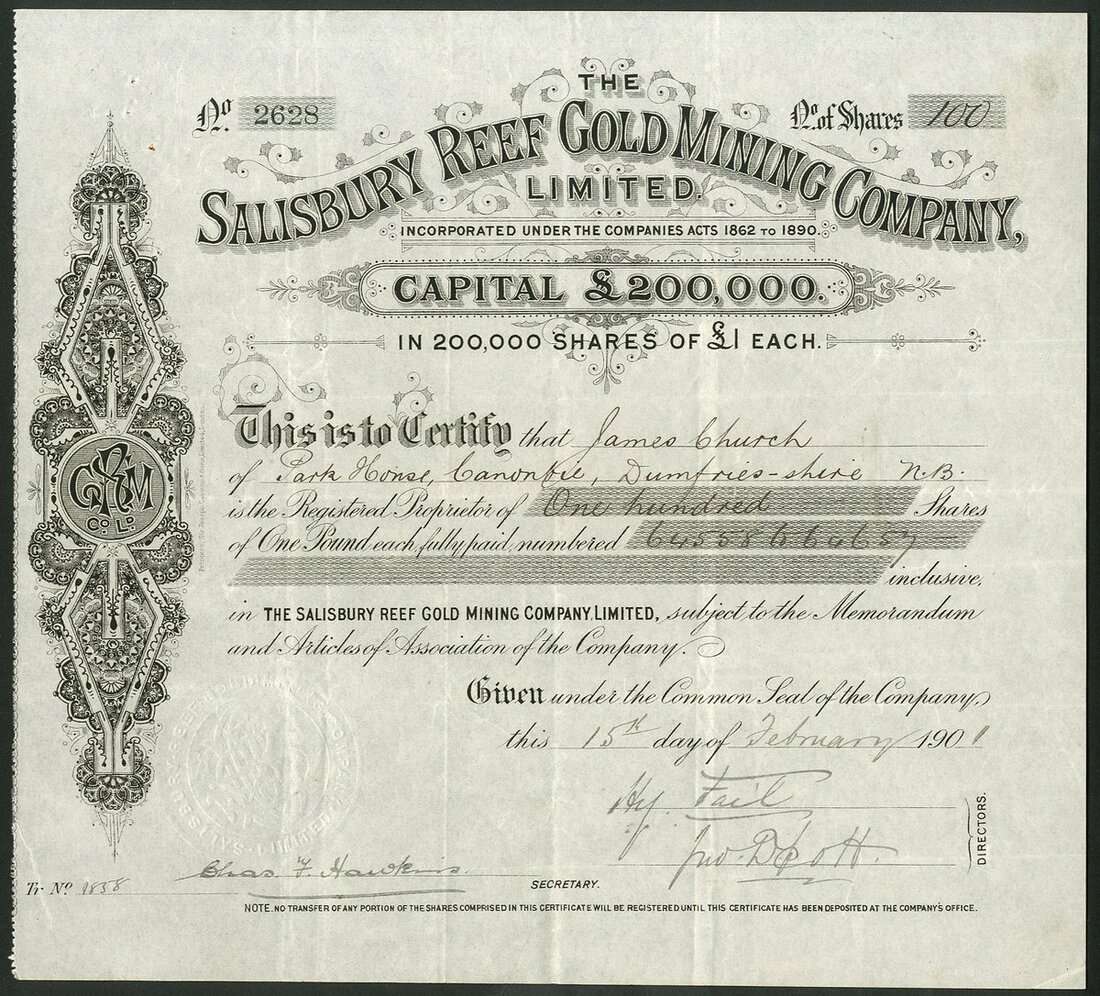 THE
No. 2628
No. of Shares 100
SALISBURY REEF GOLD MINING COMPANY,
LIMITED.
INCORPORATED UNDER THE COMPANIES ACTS 1862 TO 1890.
CAPITAL £200,000.
IN 200,000 SHARES OF £1 EACH.
This is to Certify that James Church
of Park House, Canonbie, Dumfries-shire N.B.
is the Registered Proprietor of One hundred Shares
of One Pound each, fully paid, numbered 64558 to 64657
inclusive,
in THE SALISBURY REEF GOLD MINING COMPANY, LIMITED, subject to the Memorandum
and Articles of Association of the Company.
Given under the Common Seal of the Company,
this 15th day of February 1901
Hy.
Jno.
DIRECTORS.
Chas. F. Hawkins.
SECRETARY.
Tr. No. 1858
NOTE. NO TRANSFER OF ANY PORTION OF THE SHARES COMPRISED IN THIS CERTIFICATE WILL BE REGISTERED UNTIL THIS CERTIFICATE HAS BEEN DEPOSITED AT THE COMPANY'S OFFICE.
SRGM
CO. LD.